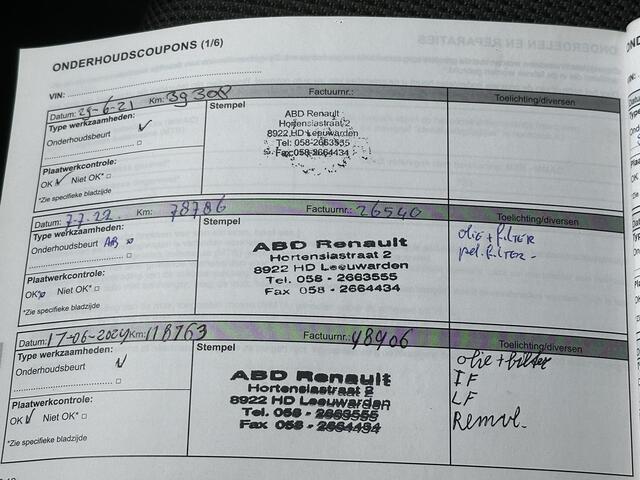 ONDERHOUDSCOUPONS (1/6)
VIN:
Datum: 29-6-21 Km: 39308 Factuurnr.: Toelichting/diversen
Type werkzaamheden:
Onderhoudsbeurt ✓
Plaatwerkcontrole:
OK ✓ Niet OK* □
*Zie specifieke bladzijde
Stempel
ABD Renault
Hortensiastraat 2
8922 HD Leeuwarden
Tel: 058-2663555
Fax: 058-2664434
Datum: 7-7-22 Km: 78786 Factuurnr.: 26540 Toelichting/diversen
Type werkzaamheden:
Onderhoudsbeurt AB
Plaatwerkcontrole:
OK Niet OK* □
*Zie specifieke bladzijde
Stempel
ABD Renault
Hortensiastraat 2
8922 HD Leeuwarden
Tel. 058 - 2663555
Fax 058 - 2664434
olie + filter
pol. filter -
Datum: 17-06-2024 Km: 118763 Factuurnr.: 48906 Toelichting/diversen
Type werkzaamheden:
Onderhoudsbeurt ✓
Plaatwerkcontrole:
OK ✓ Niet OK* □
*Zie specifieke bladzijde
Stempel
ABD Renault
Hortensiastraat 2
8922 HD Leeuwarden
Tel. 058 - 2663555
Fax 058 - 2664434
olie + filter
IF
LF
Remvl.